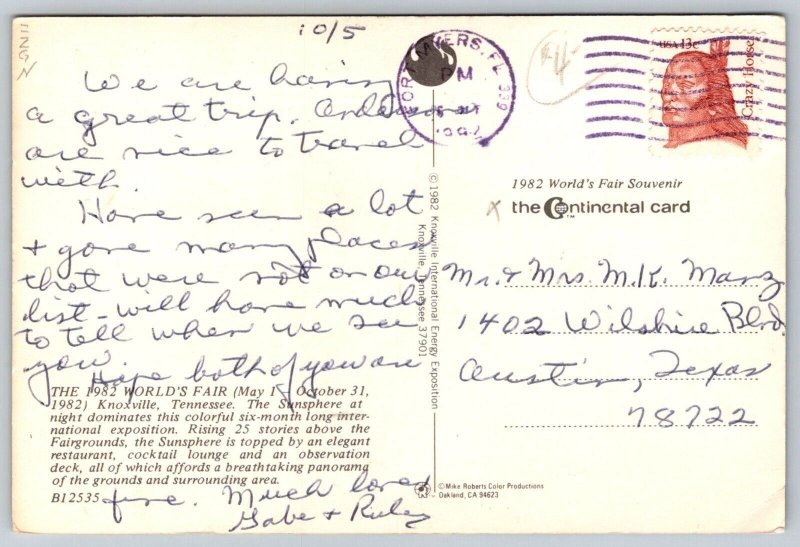 10/5
We are having
a great trip. Andersons
are nice to travel
with.
Have seen a lot
+ gone many places
that were not on our
list - will have much
to tell when we see
you.
Hope both of you are
fine. Much love,
Gabe + Ruley
THE 1982 WORLD'S FAIR (May 1 October 31,
1982) Knoxville, Tennessee. The Sunsphere at
night dominates this colorful six-month long inter-
national exposition. Rising 25 stories above the
Fairgrounds, the Sunsphere is topped by an elegant
restaurant, cocktail lounge and an observation
deck, all of which affords a breathtaking panorama
of the grounds and surrounding area.
B12535
© 1982 Knoxville International Energy Exposition
Knoxville, Tennessee 37901
FORT MYERS, FL 339
PM
1982
$4-
USA 13c
Crazy Horse
1982 World's Fair Souvenir
the Continental card
TM
Mr. + Mrs. M.K. Manz
1402 Wilshire Blvd.
Austin, Texas
78722
© Mike Roberts Color Productions
Oakland, CA 94623